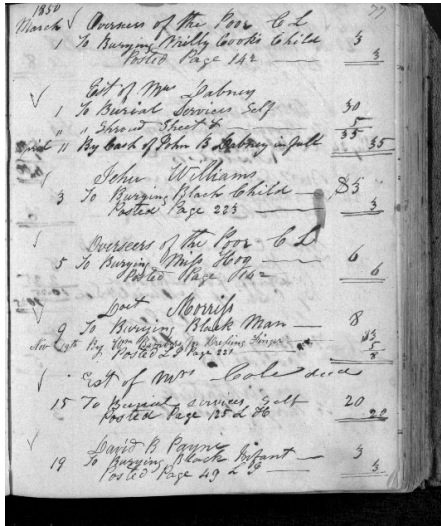 1850 77
March Overseers of the Poor C L
1 To Burying Willy Cooks Child 3
Posted Page 142 3
Est of Mrs Dabney
1 To Burial Services Self 30
" " Shroud Sheet & 5
35
11 By Cash of John B Dabney in full 35
John Williams
3 To Burying Black Child — $3
Posted Page 223 — 3
Overseers of the Poor C L
5 To Burying Miss Hog — 6
Posted Page 142 6
Doct Morriss
9 To Burying Black Man — 8
Nov 19th By Dressing Finger
Posted L I Page 221
Est of Mrs Cole decd
15 To Burial services Self 20
Posted Page 125 L H 20
David B Payne
19 To Burying Black Infant — 3
Posted Page 49 L I — 3